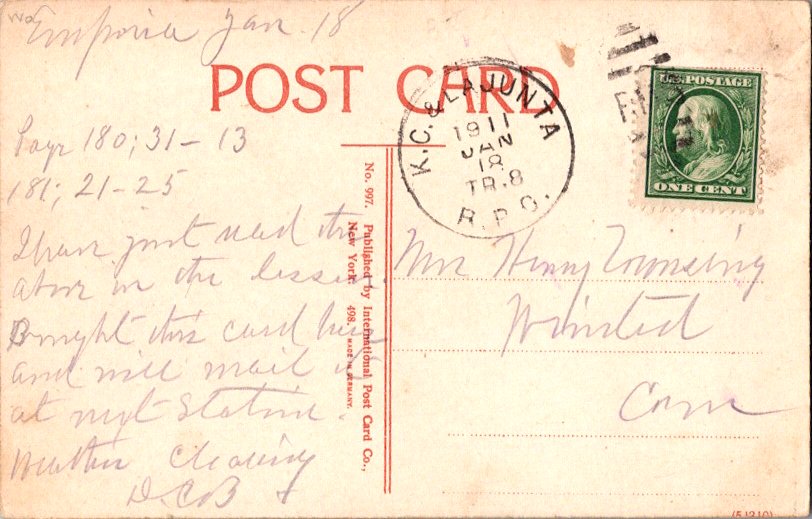 Emporia Jan. 18
POST CARD
Page 180; 31-13
181; 21-25
I have just read the
above in the lesson
Bought this card here
and will mail it
at next Station.
Weather Clearing
DCB
No. 997. Published by International Post Card Co.,
New York. 498. MADE IN GERMANY.
K.C. & LAJUNTA
1911
JAN
18
TR.8
R.P.O.
U.S. POSTAGE
ONE CENT
Mrs Henry
Winsted
Conn
(51310)